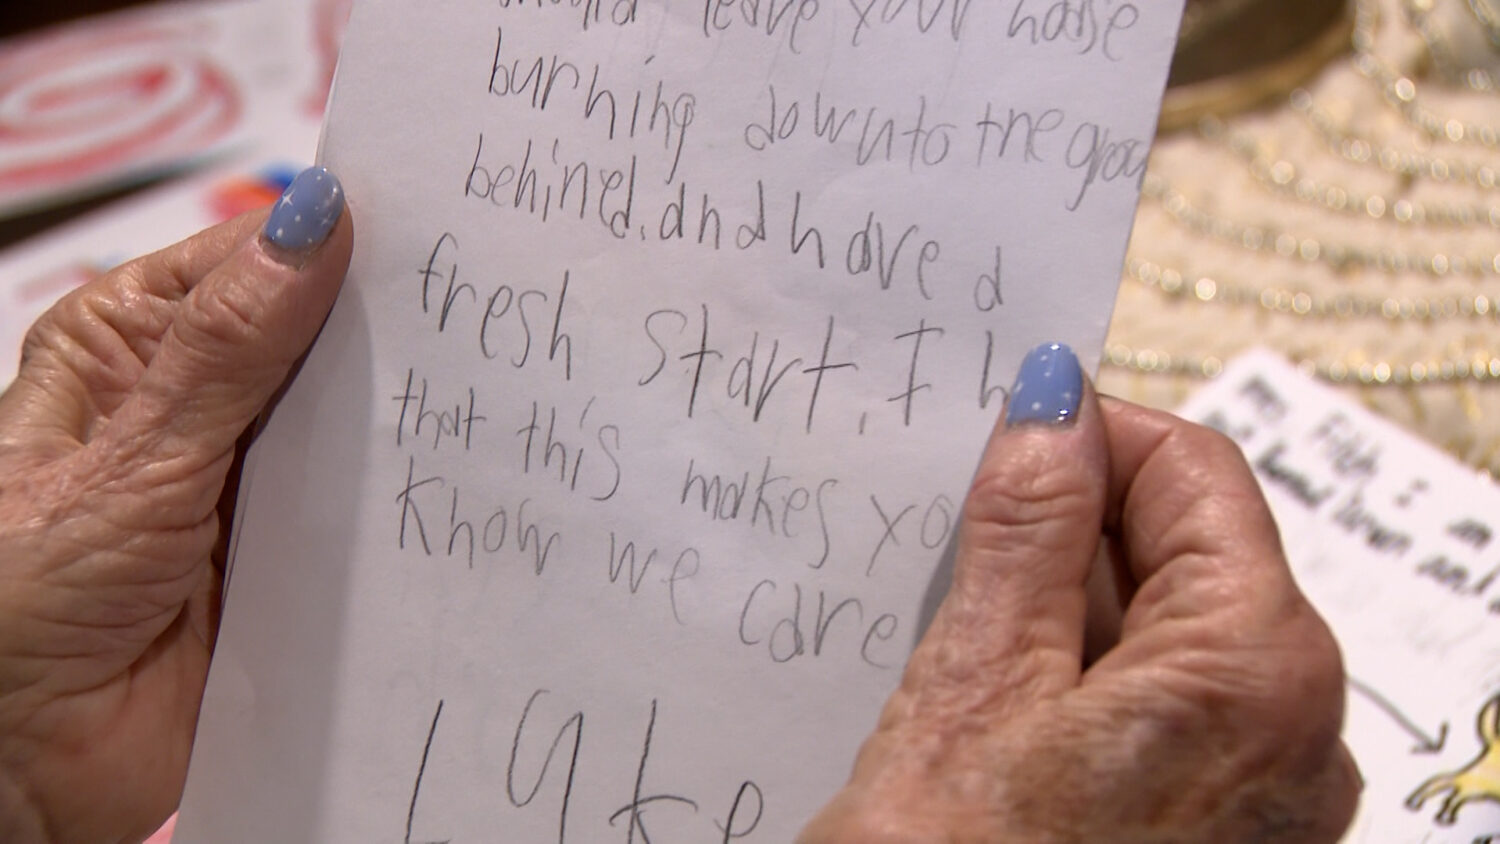 leave your house
burning down to the grou
behined. and have a
fresh start, I h
that this makes yo
know we care
Lyke
my Fith I am
brown and